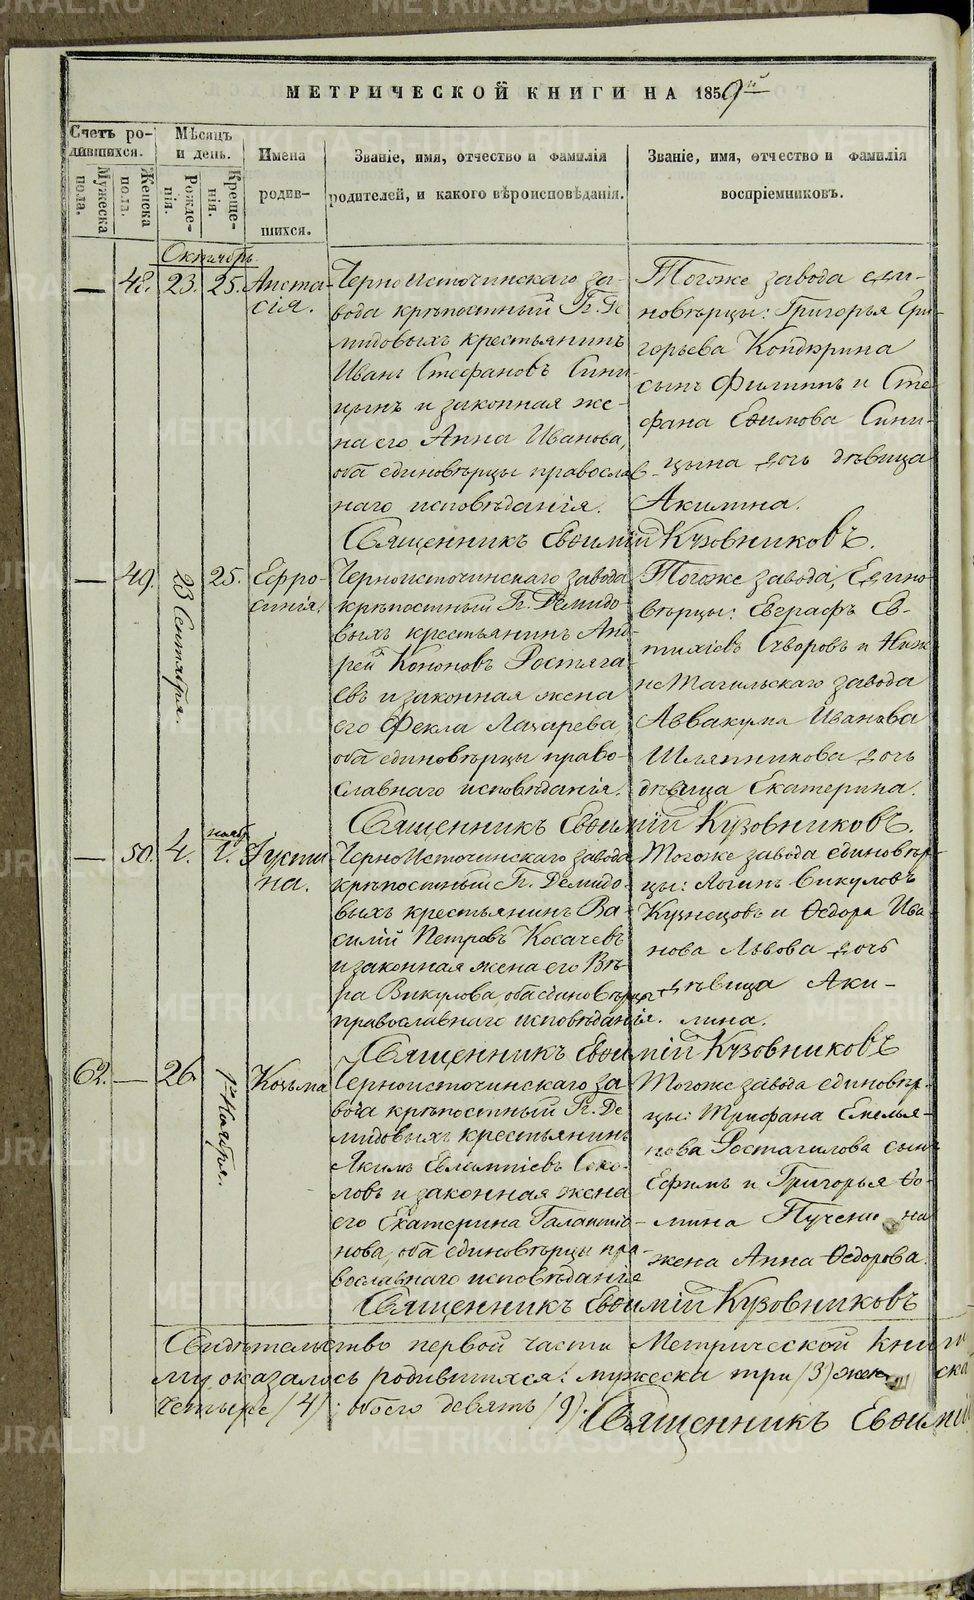 МЕТРИЧЕСКОЙ КНИГИ НА 1859й
Счетъ ро-
дившихся.
Мужеска пола.
Женска пола.
Мѣсяцъ
и день.
Рожде-
нія.
Креще-
нія.
Имена
родив-
шихся.
Званіе, имя, отчество и фамилія
родителей, и какого вѣроисповѣданія.
Званіе, имя, отчество и фамилія
воспріемниковъ.
Октябрь
— 48. 23. 25.
Анста-
сія.
Черноисточинскаго за-
вода крѣпостный Гг. Де
мидовыхъ крестьянинъ
Иванъ Стефановъ Сини-
цынъ и законная же-
на его Анна Иванова,
оба единовѣрцы православ-
наго исповѣданія.
Тогоже завода еди-
новѣрцы: Григорья Гри-
горьева Кондюрина
сынъ Филиппъ и Сте-
фана Ефимова Сини-
цына дочь дѣвица
Акилина.
Священникъ Евѳимій Кузовниковъ.
— 49. 23 Сентября. 25.
Ефро-
синія.
Черноисточинскаго завода
крѣпостный Гг. Демидо
выхъ крестьянинъ Анд-
рей Кононовъ Ростяга-
евъ и законная жена
его Фекла Лазарева,
оба единовѣрцы право-
славнаго исповѣданія.
Тогоже завода, Едино-
вѣрцы: Евграфъ Ев-
тихіевъ Суворовъ и Ниж-
не Тагильскаго завода
Аввакума Иванова
Шляпникова дочь
дѣвица Екатерина.
Священникъ Евѳимій Кузовниковъ.
— 50. 4. нояб. 1.
Іусти
на.
Черноисточинскаго завода
крѣпостный Гг. Демидо-
выхъ крестьянинъ Ва-
силій Петровъ Косачевъ
и законная жена его Вѣ-
ра Викулова, оба единовѣрцы
православнаго исповѣданія.
Тогоже завода единовѣр-
цы: Логинъ Викуловъ
Кузнецовъ и Ѳедора Ива
нова Львова дочь
дѣвица Аки-
лина.
Священникъ Евѳимій Кузовниковъ
62. — 26. 1го Ноября.
Козьма
Черноисточинскаго за
вода крѣпостный Гг. Де
мидовыхъ крестьянинъ
Якимъ Евлампіевъ Соко-
ловъ и законная жена
его Екатерина Галактіо-
нова, оба единовѣрцы пра-
вославнаго исповѣданія
Тогоже завода единовѣр-
цы: Трифана Емелья-
нова сынъ
Ефимъ и Григорья Ѳо-
мина
жена Анна Ѳедорова.
Священникъ Евѳимій Кузовниковъ
Свидѣтельство первой части Метрической книги
му оказалось родившихся: мужеска три /3/ женска
четыре /4/ обоего девять /9/. Священникъ Евѳимій
METRIKI.GASO-URAL.RU